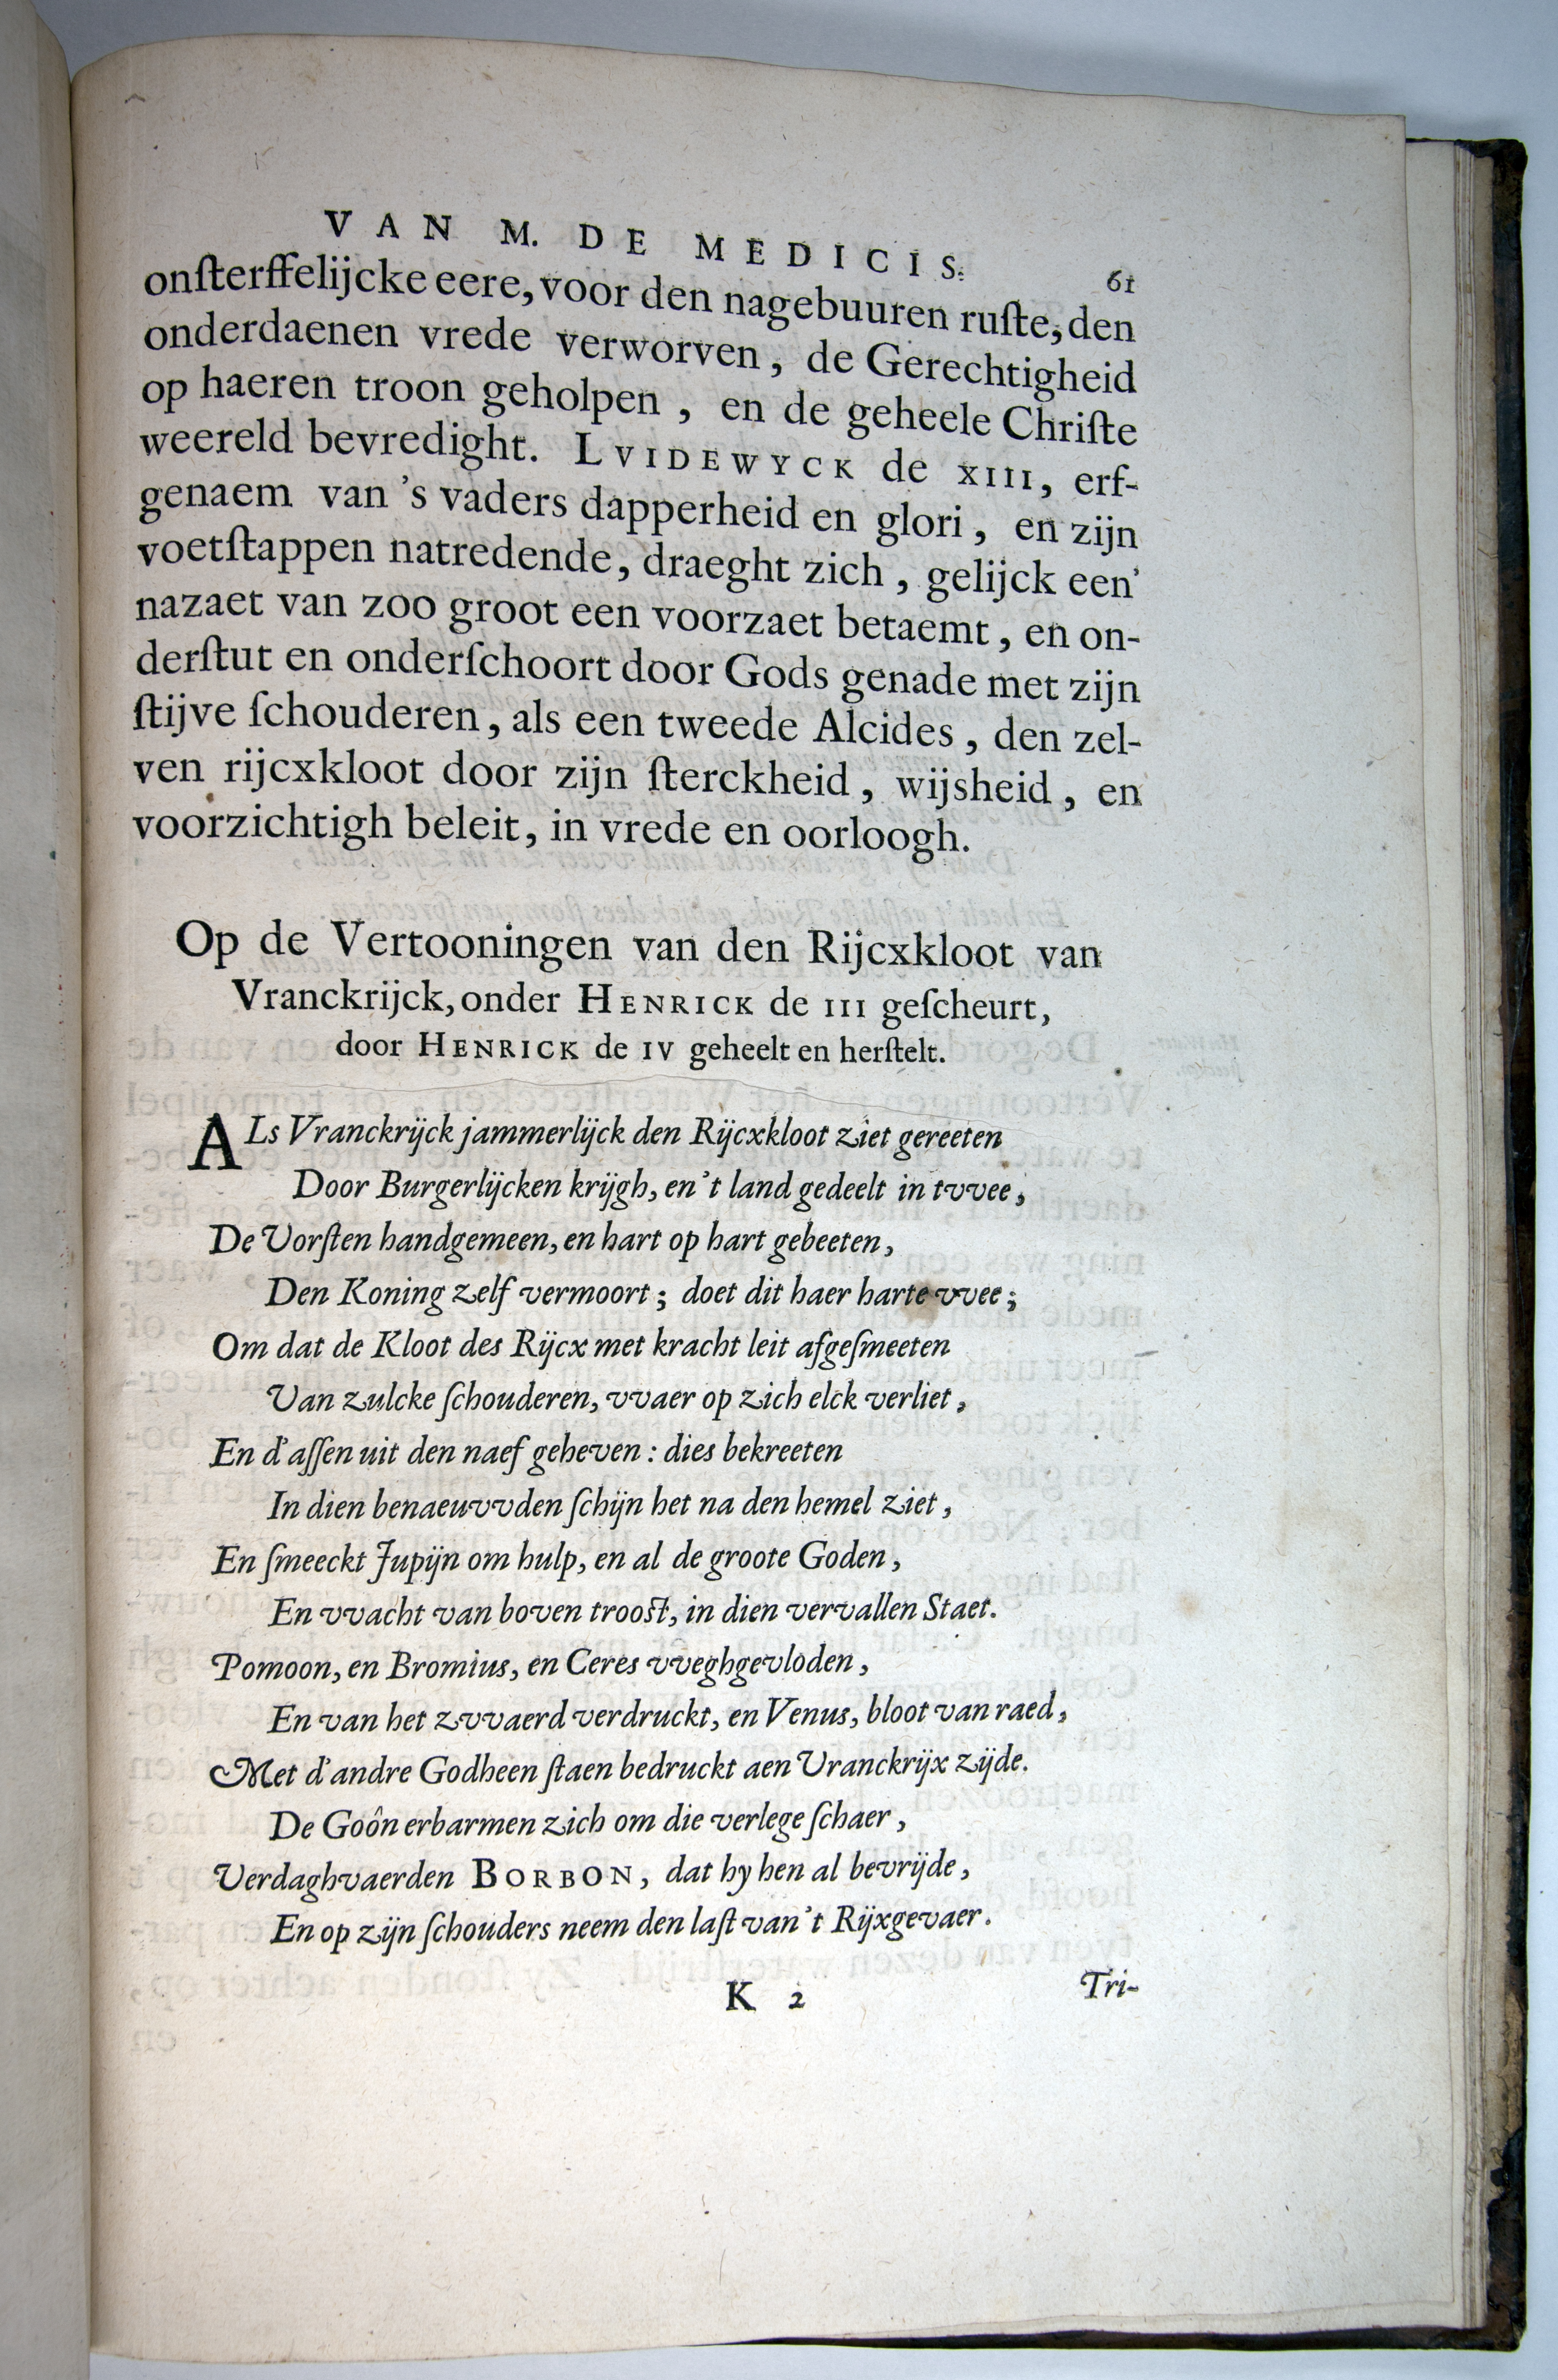 VAN M. DE MEDICIS. 61
onſterffelijcke eere, voor den nagebuuren ruſte, den
onderdaenen vrede verworven, de Gerechtigheid
op haeren troon geholpen, en de geheele Chriſte
weereld bevredight. LVIDEWYCK de XIII, erf-
genaem van 's vaders dapperheid en glori, en zijn
voetſtappen natredende, draeght zich, gelijck een'
nazaet van zoo groot een voorzaet betaemt, en on-
derſtut en onderſchoort door Gods genade met zijn
ſtijve ſchouderen, als een tweede Alcides, den zel-
ven rijcxkloot door zijn ſterckheid, wijsheid, en
voorzichtigh beleit, in vrede en oorloogh.
Op de Vertooningen van den Rijcxkloot van
Vranckrijck, onder HENRICK de III geſcheurt,
door HENRICK de IV geheelt en herſtelt.
ALs Vranckrijck jammerlijck den Rijcxkloot ziet gereeten
Door Burgerlijcken krijgh, en 't land gedeelt in tvvee,
De Vorſten handgemeen, en hart op hart gebeeten,
Den Koning zelf vermoort; doet dit haer harte vvee;
Om dat de Kloot des Rijcx met kracht leit afgeſmeeten
Van zulcke ſchouderen, vvaer op zich elck verliet,
En d'aſſen uit den naef geheven: dies bekreeten
In dien benaeuvvden ſchijn het na den hemel ziet,
En ſmeeckt Jupijn om hulp, en al de groote Goden,
En vvacht van boven trooſt, in dien vervallen Staet.
Pomoon, en Bromius, en Ceres vveghgevloden,
En van het zvvaerd verdruckt, en Venus, bloot van raed,
Met d'andre Godheen ſtaen bedruckt aen Vranckrijx zijde.
De Goôn erbarmen zich om die verlege ſchaer,
Verdaghvaerden BORBON, dat hy hen al bevrijde,
En op zijn ſchouders neem den laſt van 't Rijxgevaer.
K 2 Tri-